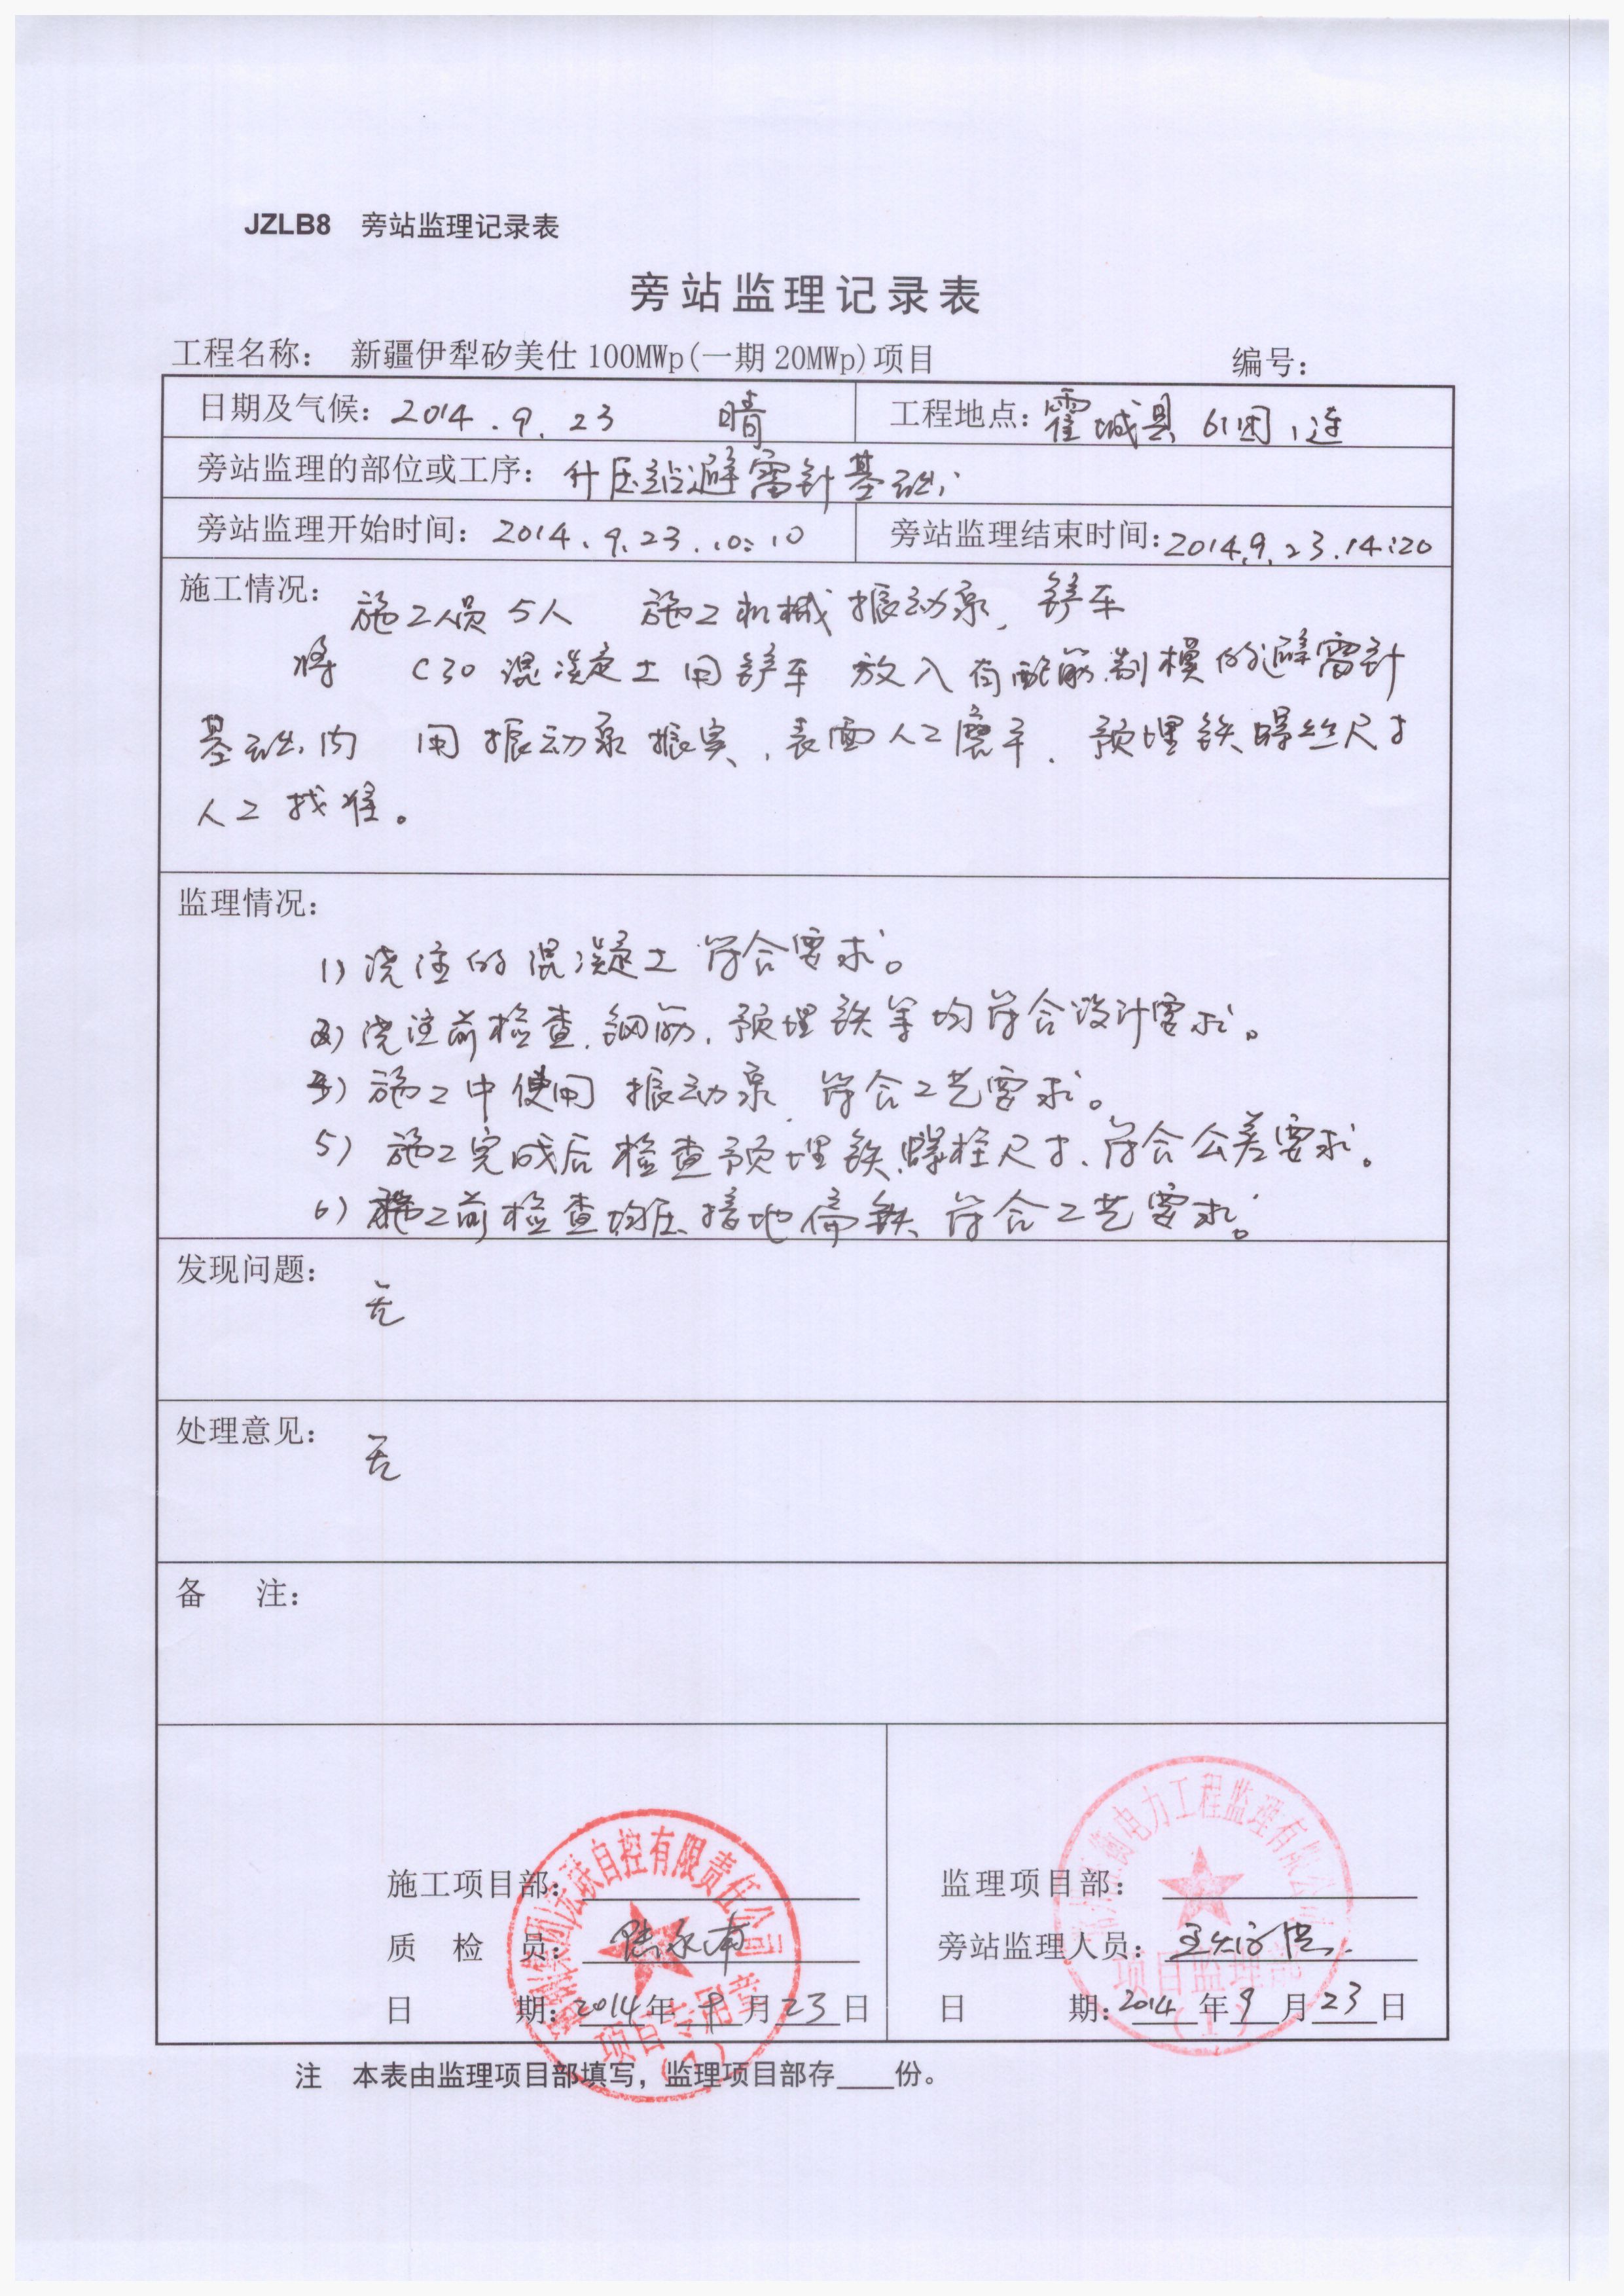 JZLB8 旁站监理记录表
旁站监理记录表
工程名称： 新疆伊犁矽美仕100MWp(一期20MWp)项目 编号：
日期及气候：2014.9.23 晴 工程地点：霍城县61团1连
旁站监理的部位或工序：升压站避雷针基础
旁站监理开始时间：2014.9.23.10:10 旁站监理结束时间：2014.9.23.14:20
施工情况： 施工人员5人 施工机械振动泵、铲车
将 C30混凝土用铲车放入有配筋制模的避雷针
基础内 用振动泵振实、表面人工磨平、预埋铁螺丝尺寸
人工找准。
监理情况：
1) 浇注的混凝土符合要求。
浇注前检查、钢筋、预埋铁等均符合设计要求。
施工中使用振动泵 符合工艺要求。
5) 施工完成后检查预埋铁、螺栓尺寸、符合公差要求。
6) 施工前检查均压接地偏铁、符合工艺要求。
发现问题： 无
处理意见： 无
备 注：
施工项目部： 监理项目部：
质 检 员： 旁站监理人员：
日 期：2014年9月23日 日 期：2014年9月23日
联自控有限责任公司
电力工程监理有限公司
项目监理部
(1)
注 本表由监理项目部填写，监理项目部存 份。